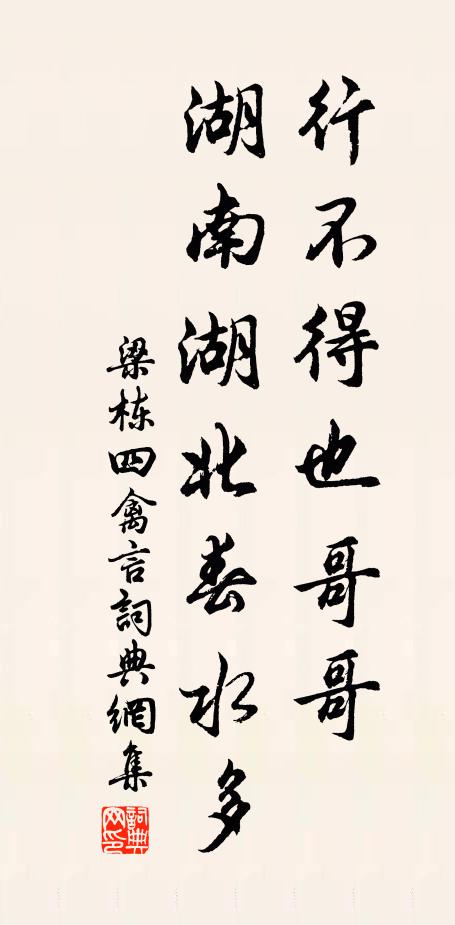 行不得也哥哥
湖南湖北春水多
梁栋四禽言詞典網集
詞典网印